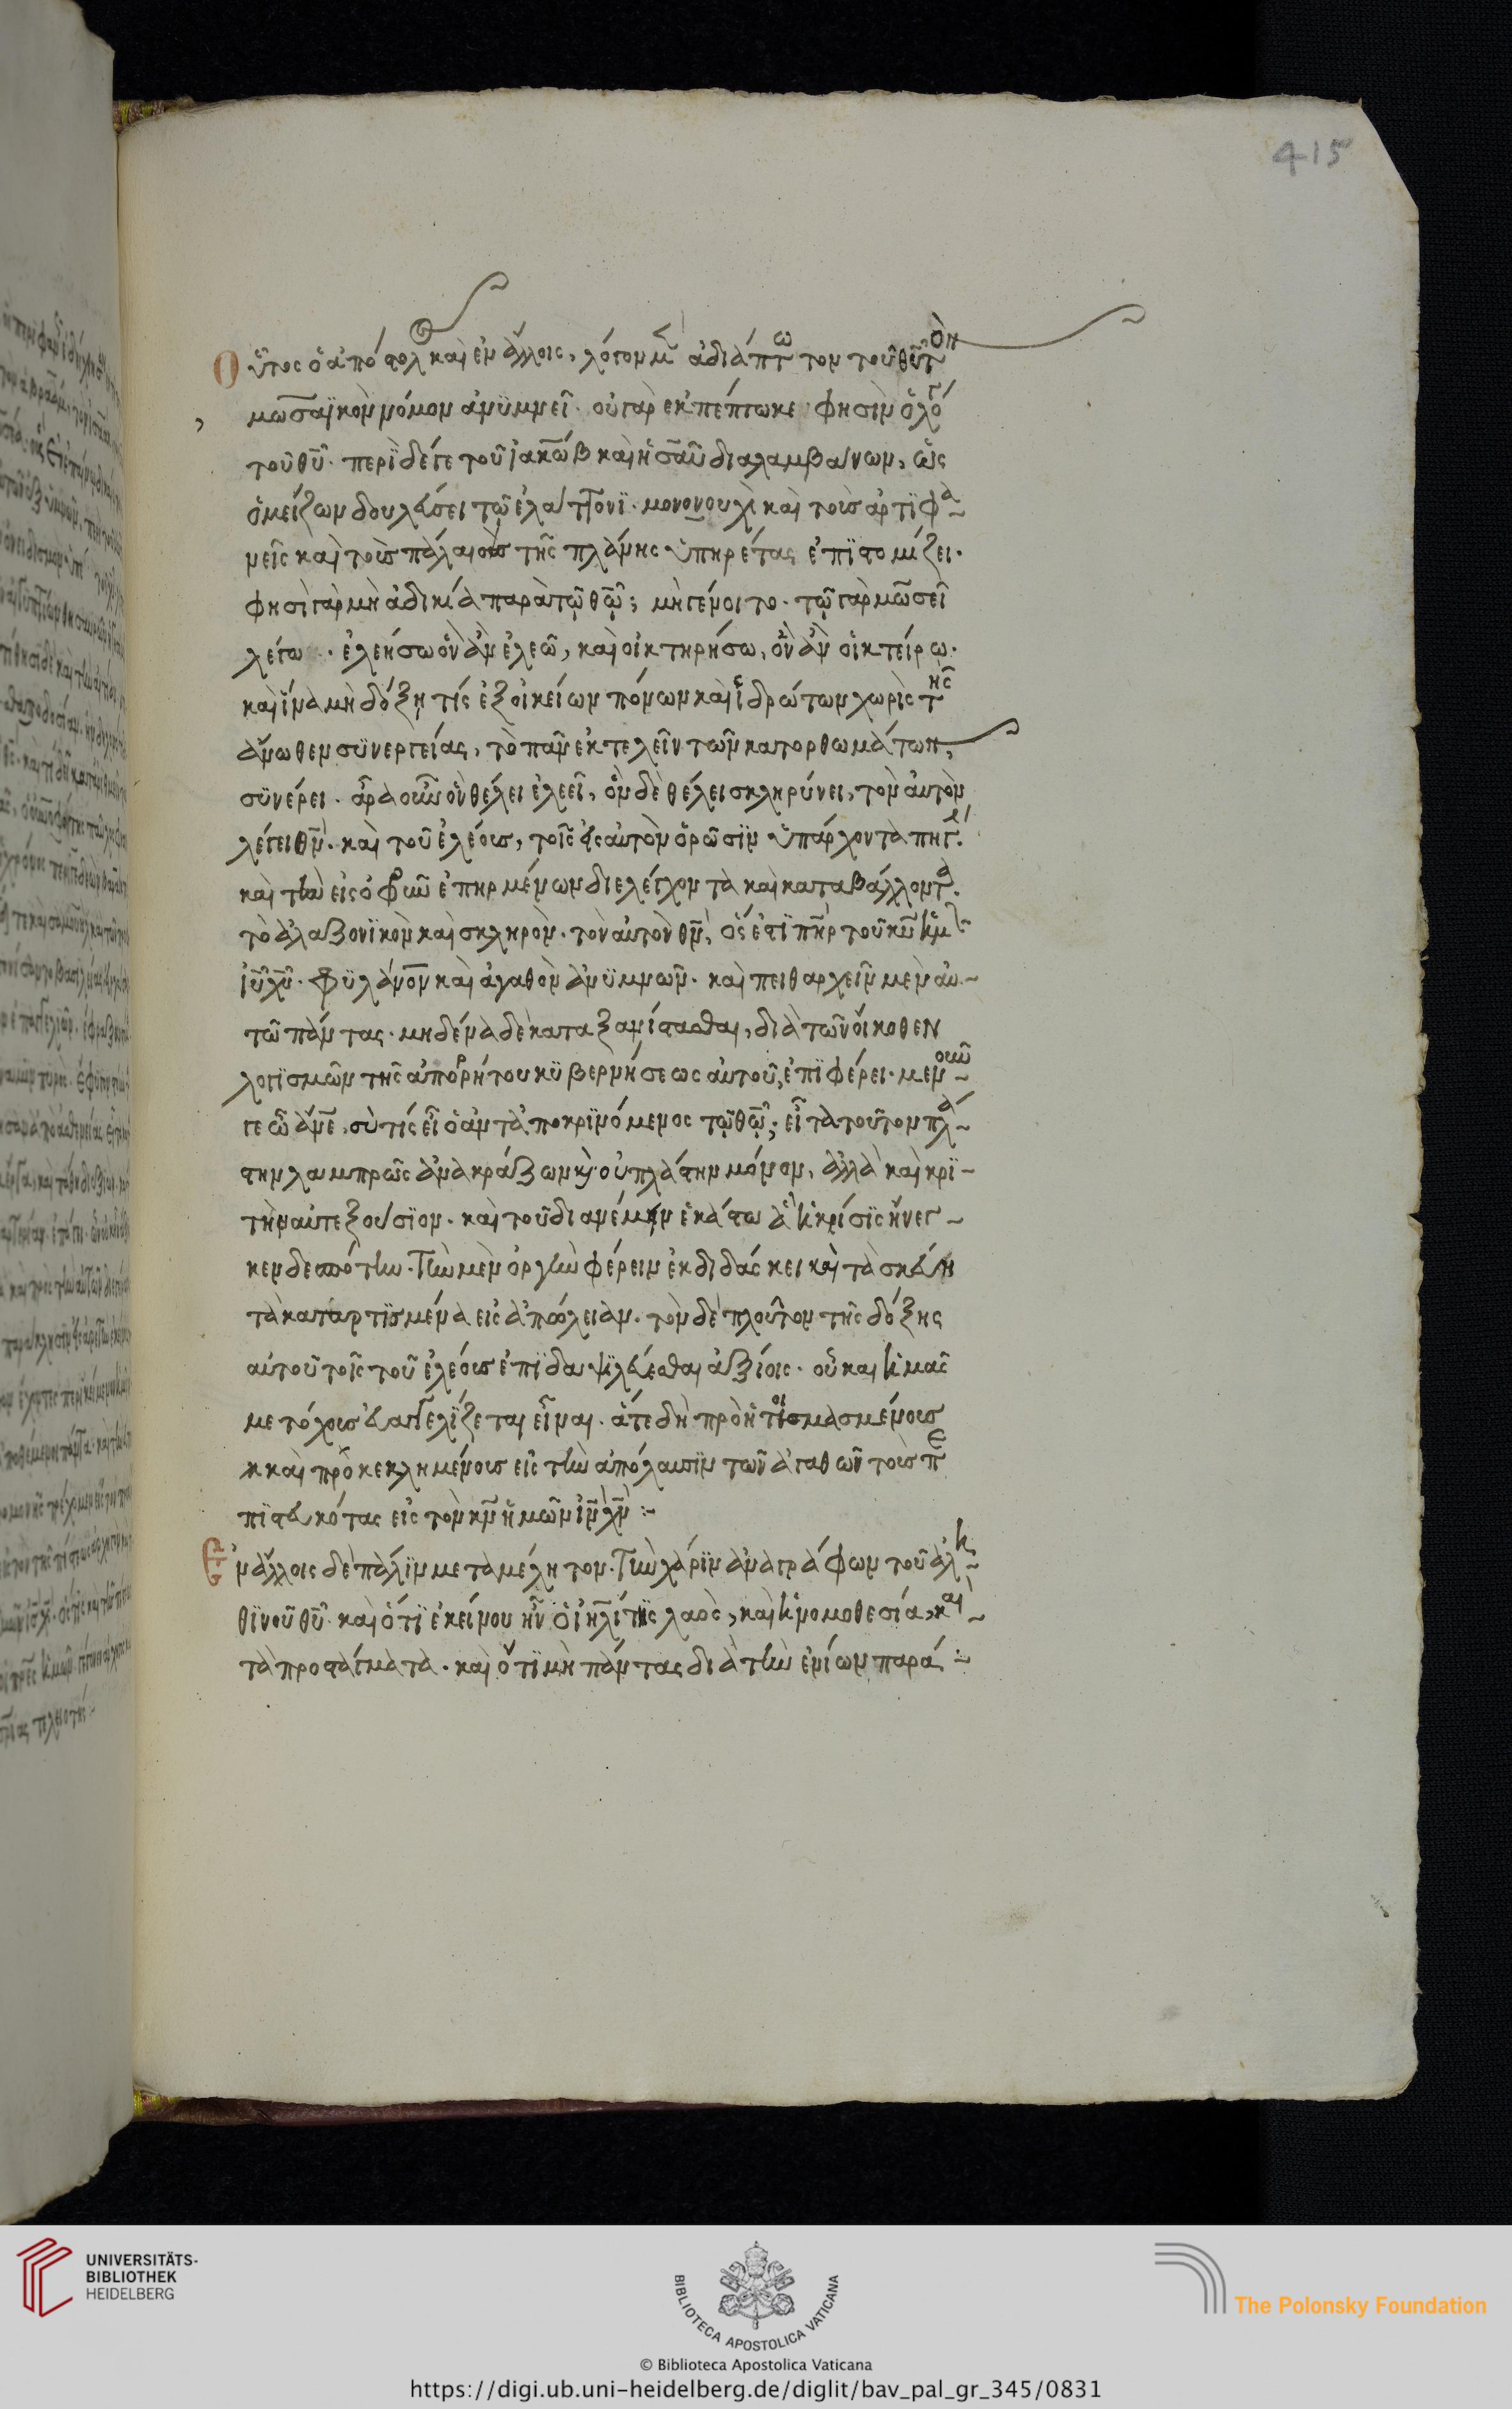 415
Οὗτος ὁ ἀπόστολ καὶ ἐν ἄλλοις, λόγον μ ἀδιάπτω τον τοῦ θῦ τὸν
μωσαϊκὸν νόμον ἀνϋμνεῖ· οὐ γὰρ ἐκπέπτωκε φησὶν ὁ λό
τοῦ θῦ· περὶ δέ γε τοῦ ἰακὼβ καὶ ἡσαῦ διαλαμβάνων, ὡς
ὁ μείζων δουλεύσει τῷ ἐλάττονϊ· μονονουχὶ καὶ τοὺς ἀρτϊφα
νεῖς καὶ τοὺς πάλαι οὓς τῆς πλάνης ὑπηρέτας ἐπϊστομίζει·
φησὶ γὰρ μὴ ἀδικία παρὰ τῷ θῷ; μὴ γένοιτο· τῷ γὰρ μωσεῖ
λέγω· ἐλεήσω ὃν ἂν ἐλεῶ, καὶ οἰκτηρήσω, ὃν ἂν οἰκτείρω·
καὶ ἵνα μὴ δόξῃ τίς ἐξ οἰκείων πόνων καὶ ἱδρώτων χωρὶς τῆς
ἄνωθεν συνεργείας, τὸ πᾶν ἐκτελεῖν τῶν κατορθωμάτων,
συνέρει· ἆρα οὖν ὃν θέλει ἐλεεῖ, ὃν δὲ θέλει σκληρύνει, τὸν αὐτὸν
λέγει θν· καὶ τοῦ ἐλέους, τοῖς εἰς αὐτὸν ὁρῶσϊν ὑπάρχοντα πηγ
καὶ τὴν εἰς ὀφρῦν ἐπηρμένων διελέγχοντα καὶ καταβάλλοντα·
τὸ ἀλαζονϊκὸν καὶ σκληρόν· τὸν αὐτὸν θν, ὅς ἐστϊ πηρ τοῦ κυ ἡμ
ιυ χυ· φϋλάνον καὶ ἀγαθὸν ἀνϋμνῶν· καὶ πειθαρχεῖν μὲν αὐ-
τῷ πάντας· μηδένα δὲ καταξανίστασθαι, διὰ τῶν οἴκοθεν
λογϊσμῶν τῆς ἀπορρήτου κϋβερνήσεως αὐτοῦ, ἐπϊφέρει· μενοῦν
γε ὦ ἄνε, σὺ τίς εἶ ὁ ἀνταποκρϊνόμενος τῷ θῷ; εἶτα τοῦτον πλά
στην λαμπρῶς ἀνακράζων κὶ οὐ πλάστην μόνον, ἀλλὰ καὶ κρϊ-
τὴν αὐτεξούσϊον· καὶ τοῦ διανέμειν ἑκάστω ἃ ἡ κρίσϊς ἤνεγ-
κεν δεσπότην· τὴν μὲν ὀργὴν φέρειν ἐκδιδάσκει καὶ τὰ σκεύη
τὰ κατηρτϊσμένα εἰς ἀπώλειαν· τὸν δὲ πλοῦτον τῆς δόξης
αὐτοῦ τοῖς τοῦ ἐλέους ἐπϊδαψϊλεύεσθαι ἀξίοις· οὗ καὶ ἡμᾶς
μετόχους εὐαγγελίζεται εἶναι· ἅτε δὴ προητοιμασμένους
καὶ προκεκλημένους εἰς τὴν ἀπόλαυσϊν τῶν ἀγαθῶν τοὺς πε
πϊστευκότας εἰς τὸν κν ἡμῶν ιν χν :-
Ἐν ἄλλοις δὲ πάλϊν μεταμέλητον· τὴν χάρϊν ἀναγράφων τοῦ ἀλη
θϊνοῦ θυ· καὶ ὅτϊ ἐκείνου ἦν ὁ ἰηλίτης λαὸς, καὶ ἡ νομοθεσία, καὶ
τὰ προστάγματα· καὶ ὅτϊ μὴ πάντας διὰ τὴν ἐνίων παρά :-
UNIVERSITÄTS-
BIBLIOTHEK
HEIDELBERG
BIBLIOTECA APOSTOLICA VATICANA
The Polonsky Foundation
© Biblioteca Apostolica Vaticana
https://digi.ub.uni-heidelberg.de/diglit/bav_pal_gr_345/0831